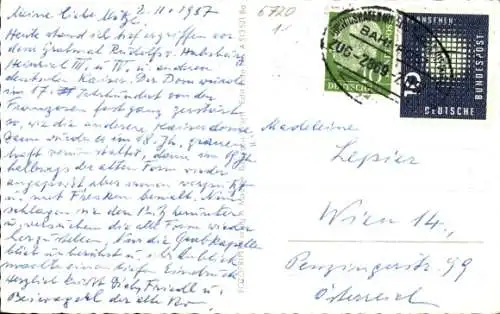 Meine liebe Mitzl, 2.11.1957
Heute stand ich tief ergriffen vor
dem Grabmal Rudolfs v. Habsburg
Heinrich III. u. IV. u. anderen
deutschen Kaisern. Der Dom wurde
im 17. Jahrhundert von den
Franzosen fast ganz zerstört
so, wie die anderen Kaiserdome
Dann wurde er im 18. Jh.
haft verunstaltet, dann im 19. Jh.
halbwegs der alten Form wieder
angepaßt aber innen
u. mit Fresken bemalt. Nun
schlagen sie den Putz herunter
u. versuchen die alte Form wieder
herzustellen. Nur die Grabkapelle
blieb unberührt u. ihr Anblick
machte einen tiefen Eindruck
Herzlich küßt Dich Friedl u.
der alte
6720
BAHNPOST
ZUG
10
DEUTSCHE
DEUTSCHE
BUNDESPOST
Madeleine
Lepsier
Wien 14.,
Penzingerstr. 99
Österreich